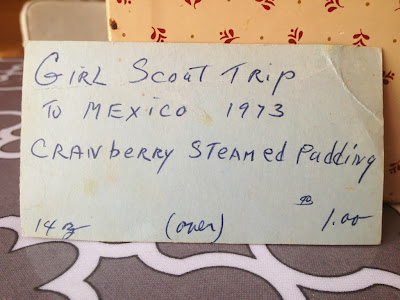 GiRL Scout TRip
To MEXiCO 1973
CRANbeRRy STeaMed Pudding
14 oz (over) 1.00